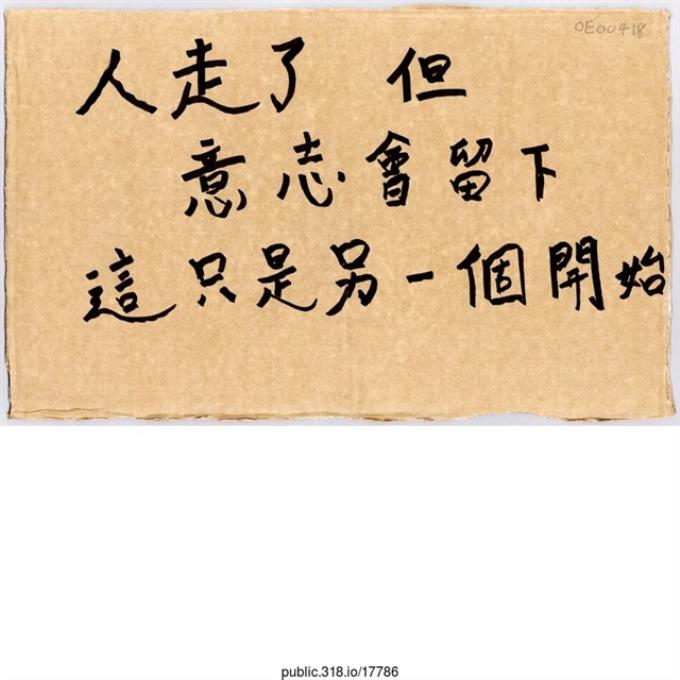 OE00418
人走了 但
意志會留下
這只是另一個開始
public.318.io/17786